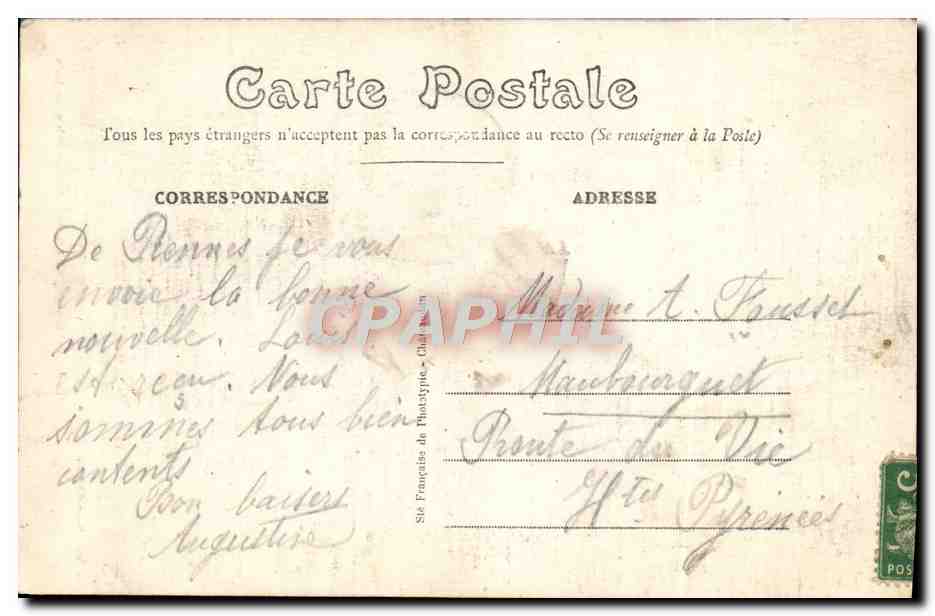 Carte Postale
Tous les pays étrangers n'acceptent pas la correspondance au recto (Se renseigner à la Poste)
CORRESPONDANCE
De Rennes je vous
envoie la bonne
nouvelle. Louis
est reçu. Nous
sommes tous bien
contents
Bon baisers
Augustine
Sté Française de Phototypie -
ADRESSE
Madame A. Fousset
Maubourguet
Route du Vic
Htes Pyrénées
CPAPHIL
POS